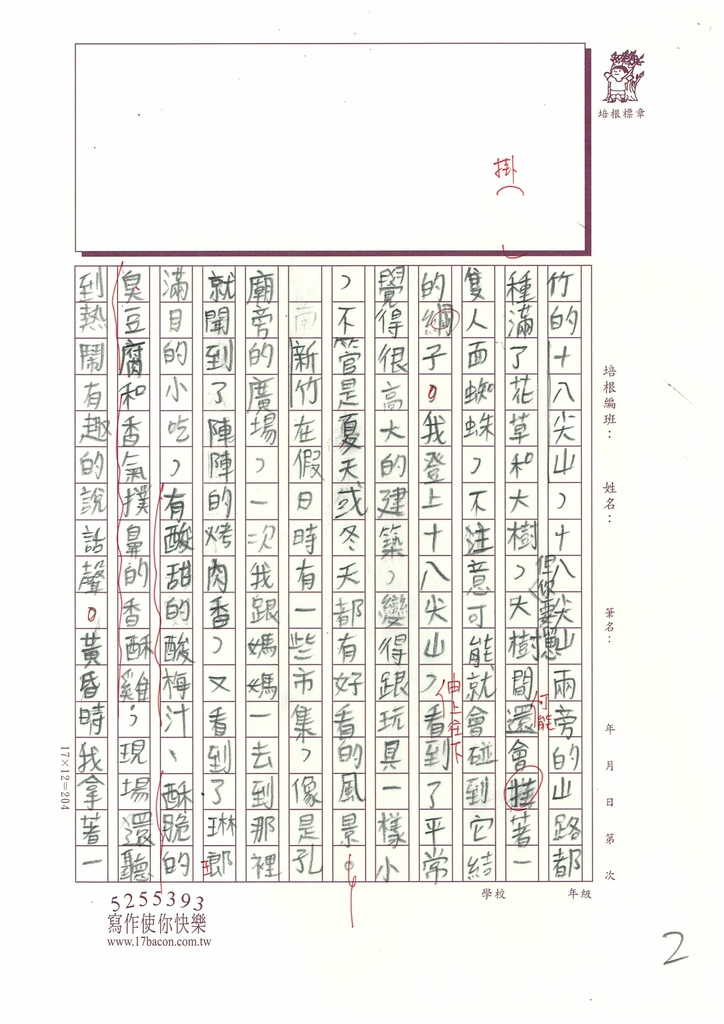 竹的十八尖山，十八尖山兩旁的山路都
種滿了花草和大樹，大樹間還會掛著一
但你要摁
可能
掛
隻人面蜘蛛，不注意可能就會碰到它結
的網子。我登上十八尖山，看到了平常
由上往下
覺得很高大的建築，變得跟玩具一樣小
，不管是夏天或冬天都有好看的風景
新竹在假日時有一些市集，像是孔
廟旁的廣場，一次我跟媽媽一去到那裡
就聞到了陣陣的烤肉香，又看到了琳瑯
滿目的小吃，有酸甜的酸梅汁、酥脆的
臭豆腐和香氣撲鼻的香酥雞，現場還聽
到熱鬧有趣的說話聲。黃昏時我拿著一
培根標章
培根編班：
姓名：
筆名：
年 月 日 第 次
學校 年級
17×12=204
5255393
寫作使你快樂
www.17bacon.com.tw
2